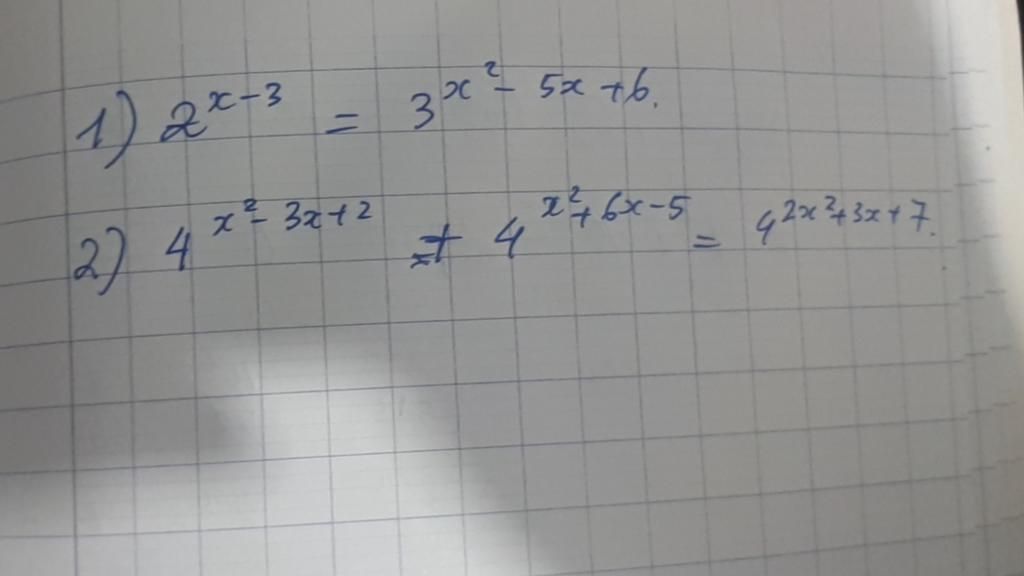 1) 2^{x-3} = 3^{x^2 - 5x + 6}.
2) 4^{x^2 - 3x + 2} + 4^{x^2 + 6x - 5} = 4^{2x^2 + 3x + 7}.